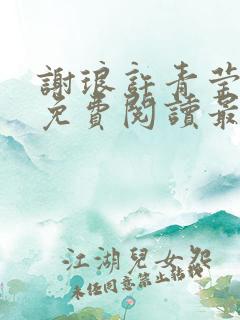 謝琅許青瑩
免費閱讀最
江湖兒女怨
未經同意禁止轉載